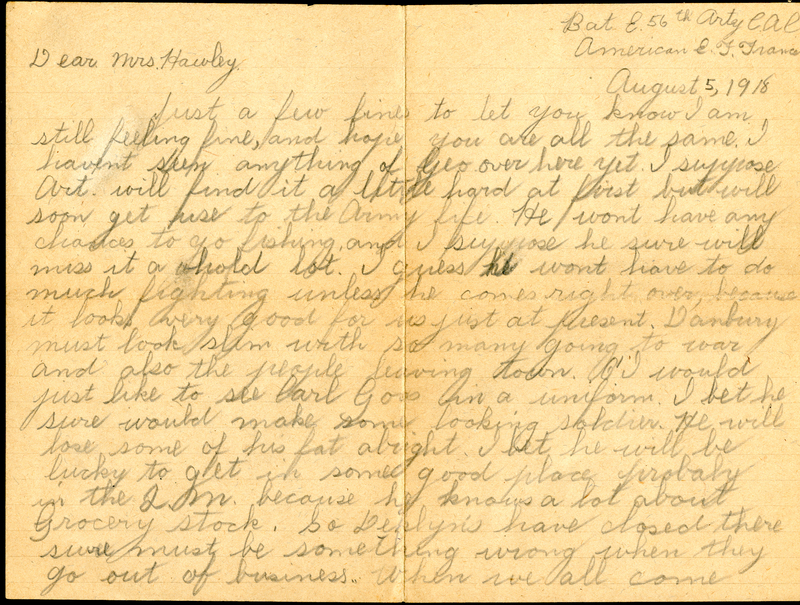 Bat. E. 56th Arty C.A.C
American E. F. France
Dear Mrs. Hawley.
August 5, 1918
Just a few lines to let you know I am
still feeling fine, and hope you are all the same. I
havent seen anything of Geo over here yet. I suppose
Art. will find it a little hard at first but will
soon get use to the Army life. He wont have any
chances to go fishing, and I suppose he sure will
miss it a whold lot. I guess he wont have to do
much fighting unless he comes right over, because
it looks very good for us just at present. Danbury
must look slim with so many going to war
and also the people leaving town. O I would
just like to see Carl Goos in a uniform. I bet he
sure would make some looking soldier. He will
lose some of his fat alright. I bet he will be
lucky to get in some good place probaly
in the Q.M. because he knows a lot about
Grocery stock. So have closed there
sure must be something wrong when they
go out of business. When we all come